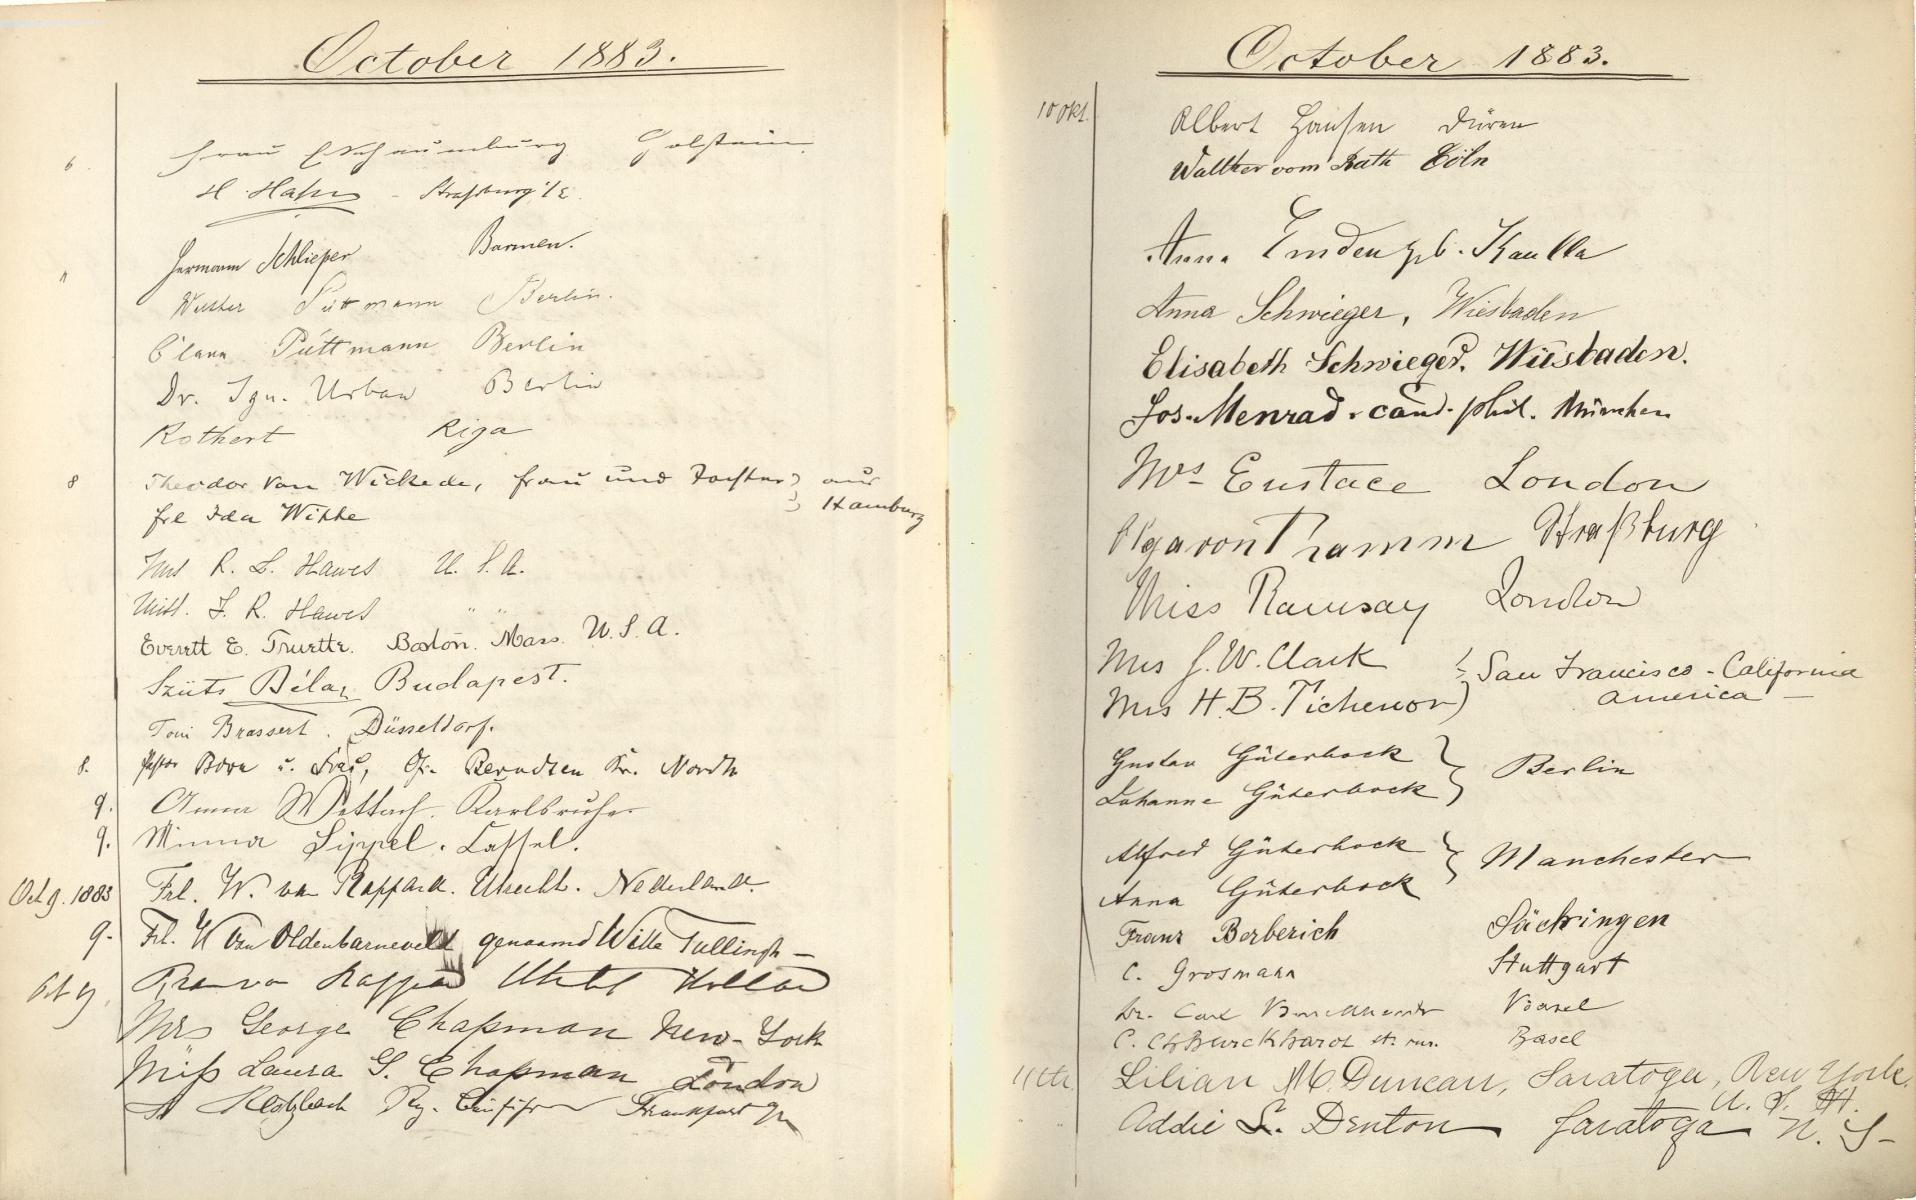 October 1883.
6. Frau E Schaumburg Holstein.
H. Hahn - Straßburg i/E.
Hermann Schlieper Barmen.
" Walther Püttmann Berlin.
Clara Püttmann Berlin
Dr. Ign. Urban Berlin
Rothert Riga
8 Theodor van Wickede, Frau und Tochter } aus
Frl Ida Witke } Hamburg
Mrs R. L. Hawes U. S. A.
Miss. F. R. Hawes " "
Everett E. Truette. Boston. Mass. U. S. A.
Szüts Béla, Budapest.
Toni Brassert. Düsseldorf.
8. Pastor Born u. Frau, Kr. North
9. Anna Wettach. Karlsruhe
9. Minna Sippel. Cassel.
Oct 9. 1883 Frl. W. van Rappard. Utrecht. Nederland.
9. Frl. W van Oldenbarneveld genaamd Witte Tullingh -
Oct 9 van Rappard Utrecht Holland
Mrs George Chapman New-York
Miss Laura G. Chapman London
Frankfurt
October 1883.
10 Okt. Albert Hansen Düren
Walther vom Rath Cöln
Anna Emden geb. Kaulla
Anna Schwieger, Wiesbaden
Elisabeth Schwieger. Wiesbaden.
Jos. Menrad. cand. phil. München
Mrs Eustace London
Olga von Thramm Straßburg
Miss Ramsay London
Mrs J. W. Clark } San Francisco - California
Mrs H. B. Tichenor ) America -
Gustav Güterbock } Berlin
Johanne Güterbock }
Alfred Güterbock } Manchester
Anna Güterbock
Franz Berberich Säckingen
C. Grosmann Stuttgart
Dr. Carl Basel
C. Chr Burckhardt Basel
11th Lilian M. Duncan, Saratoga, New York.
U. S. A.
" " Addie S. Denton Saratoga N. Y-